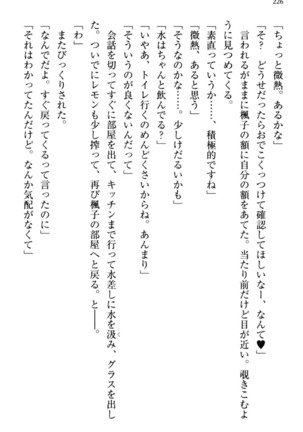 226
「ちょっと微熱、あるかな」
「そ？　どうせだったらおでこくっつけて確認してほしいなー、なんて♥」
言われるがままに楓子の額に自分の額をあてた。当たり前だけど目が近い。覗きこむよ
うに見つめてくる。
「素直っていうか……、積極的ですね」
「微熱、あると思う」
「そうなのかな……。少しけだるいかも」
「水はちゃんと飲んでる？」
「いやあ、トイレ行くのめんどくさいからね。あんまり」
「そういうのが良くないんだって」
会話を切ってすぐに部屋を出て、キッチンまで行って水差しに水を汲み、グラスを出し
た。ついでにレモンも少し搾って、再び楓子の部屋へと戻る。と――。
「わ」
またびっくりされた。
「なんでだよ。すぐ戻ってくるって言ったのに」
「それはわかってたんだけど。なんか気配がなくて」